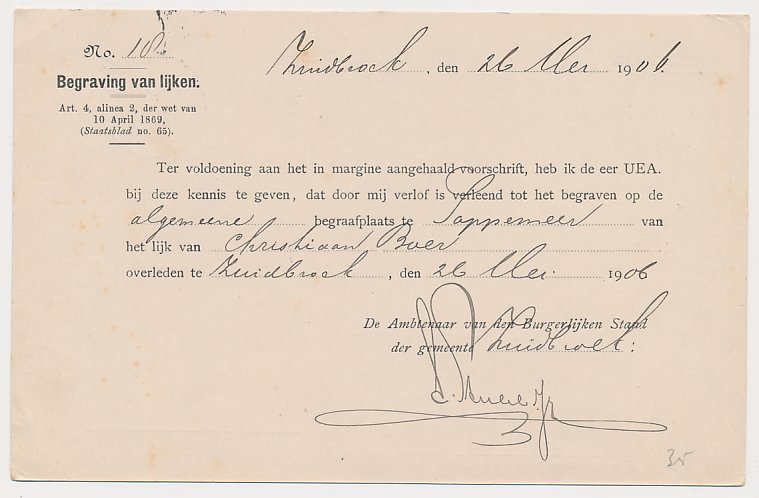 No. 10
Zuidbroek, den 26 Mei 1906.
Begraving van lijken.
Art. 4, alinea 2, der wet van
10 April 1869,
(Staatsblad no. 65).
Ter voldoening aan het in margine aangehaald voorschrift, heb ik de eer UEA.
bij deze kennis te geven, dat door mij verlof is verleend tot het begraven op de
algemeene begraafplaats te Sappemeer van
het lijk van Christiaan Boer
overleden te Zuidbroek, den 26 Mei 1906
De Ambtenaar van den Burgerlijken Stand
der gemeente Zuidbroek:
35